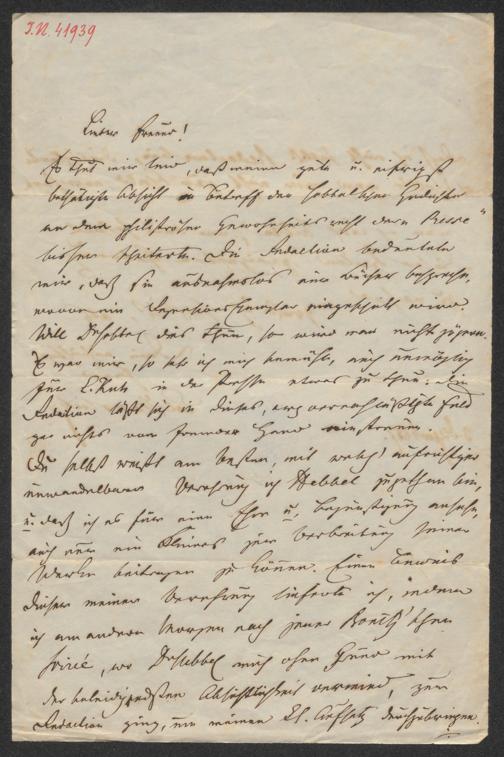 I.N. 41939
Lieber Freund!
Es thut mir leid, daß meine gute u. eifrigst
bethätigte Absicht in Betreff der Hebbel'schen Gedichte
an dem philiströsen Gewohnheitsrecht der „Presse“
bisher scheiterte. Die Redaction bedeutete
mir, daß sie ausnahmslos nur Bücher bespreche,
wovon ein Recensionsexemplar eingeschickt wird.
Will Dr Hebbel dies thun, so wird man nicht zögern.
Es war mir, so sehr ich mich bemühte, auch unmöglich
für L. in der Presse etwas zu thun. Die
Redaction läßt sich in dieses, arg vernachlässigte Feld
gar nichts von fremder Hand einstreuen.
Du selbst weißt am besten, mit welch' aufrichtiger
unwandelbarer Verehrung ich Hebbel zugethan bin,
u. daß ich es für eine Ehre u. Begünstigung ansehe,
auch nur ein Kleines zur Verbreitung seiner
Werke beitragen zu können. Einen Beweis
dieser meiner Verehrung lieferte ich, indem
ich am andern Morgen nach jener
Soirée, wo Dr Hebbel mich ohne Grund mit
der beleidigendsten Absichtlichkeit vermied, zur
Redaction ging, um meinen Aufsatz durchzubringen.